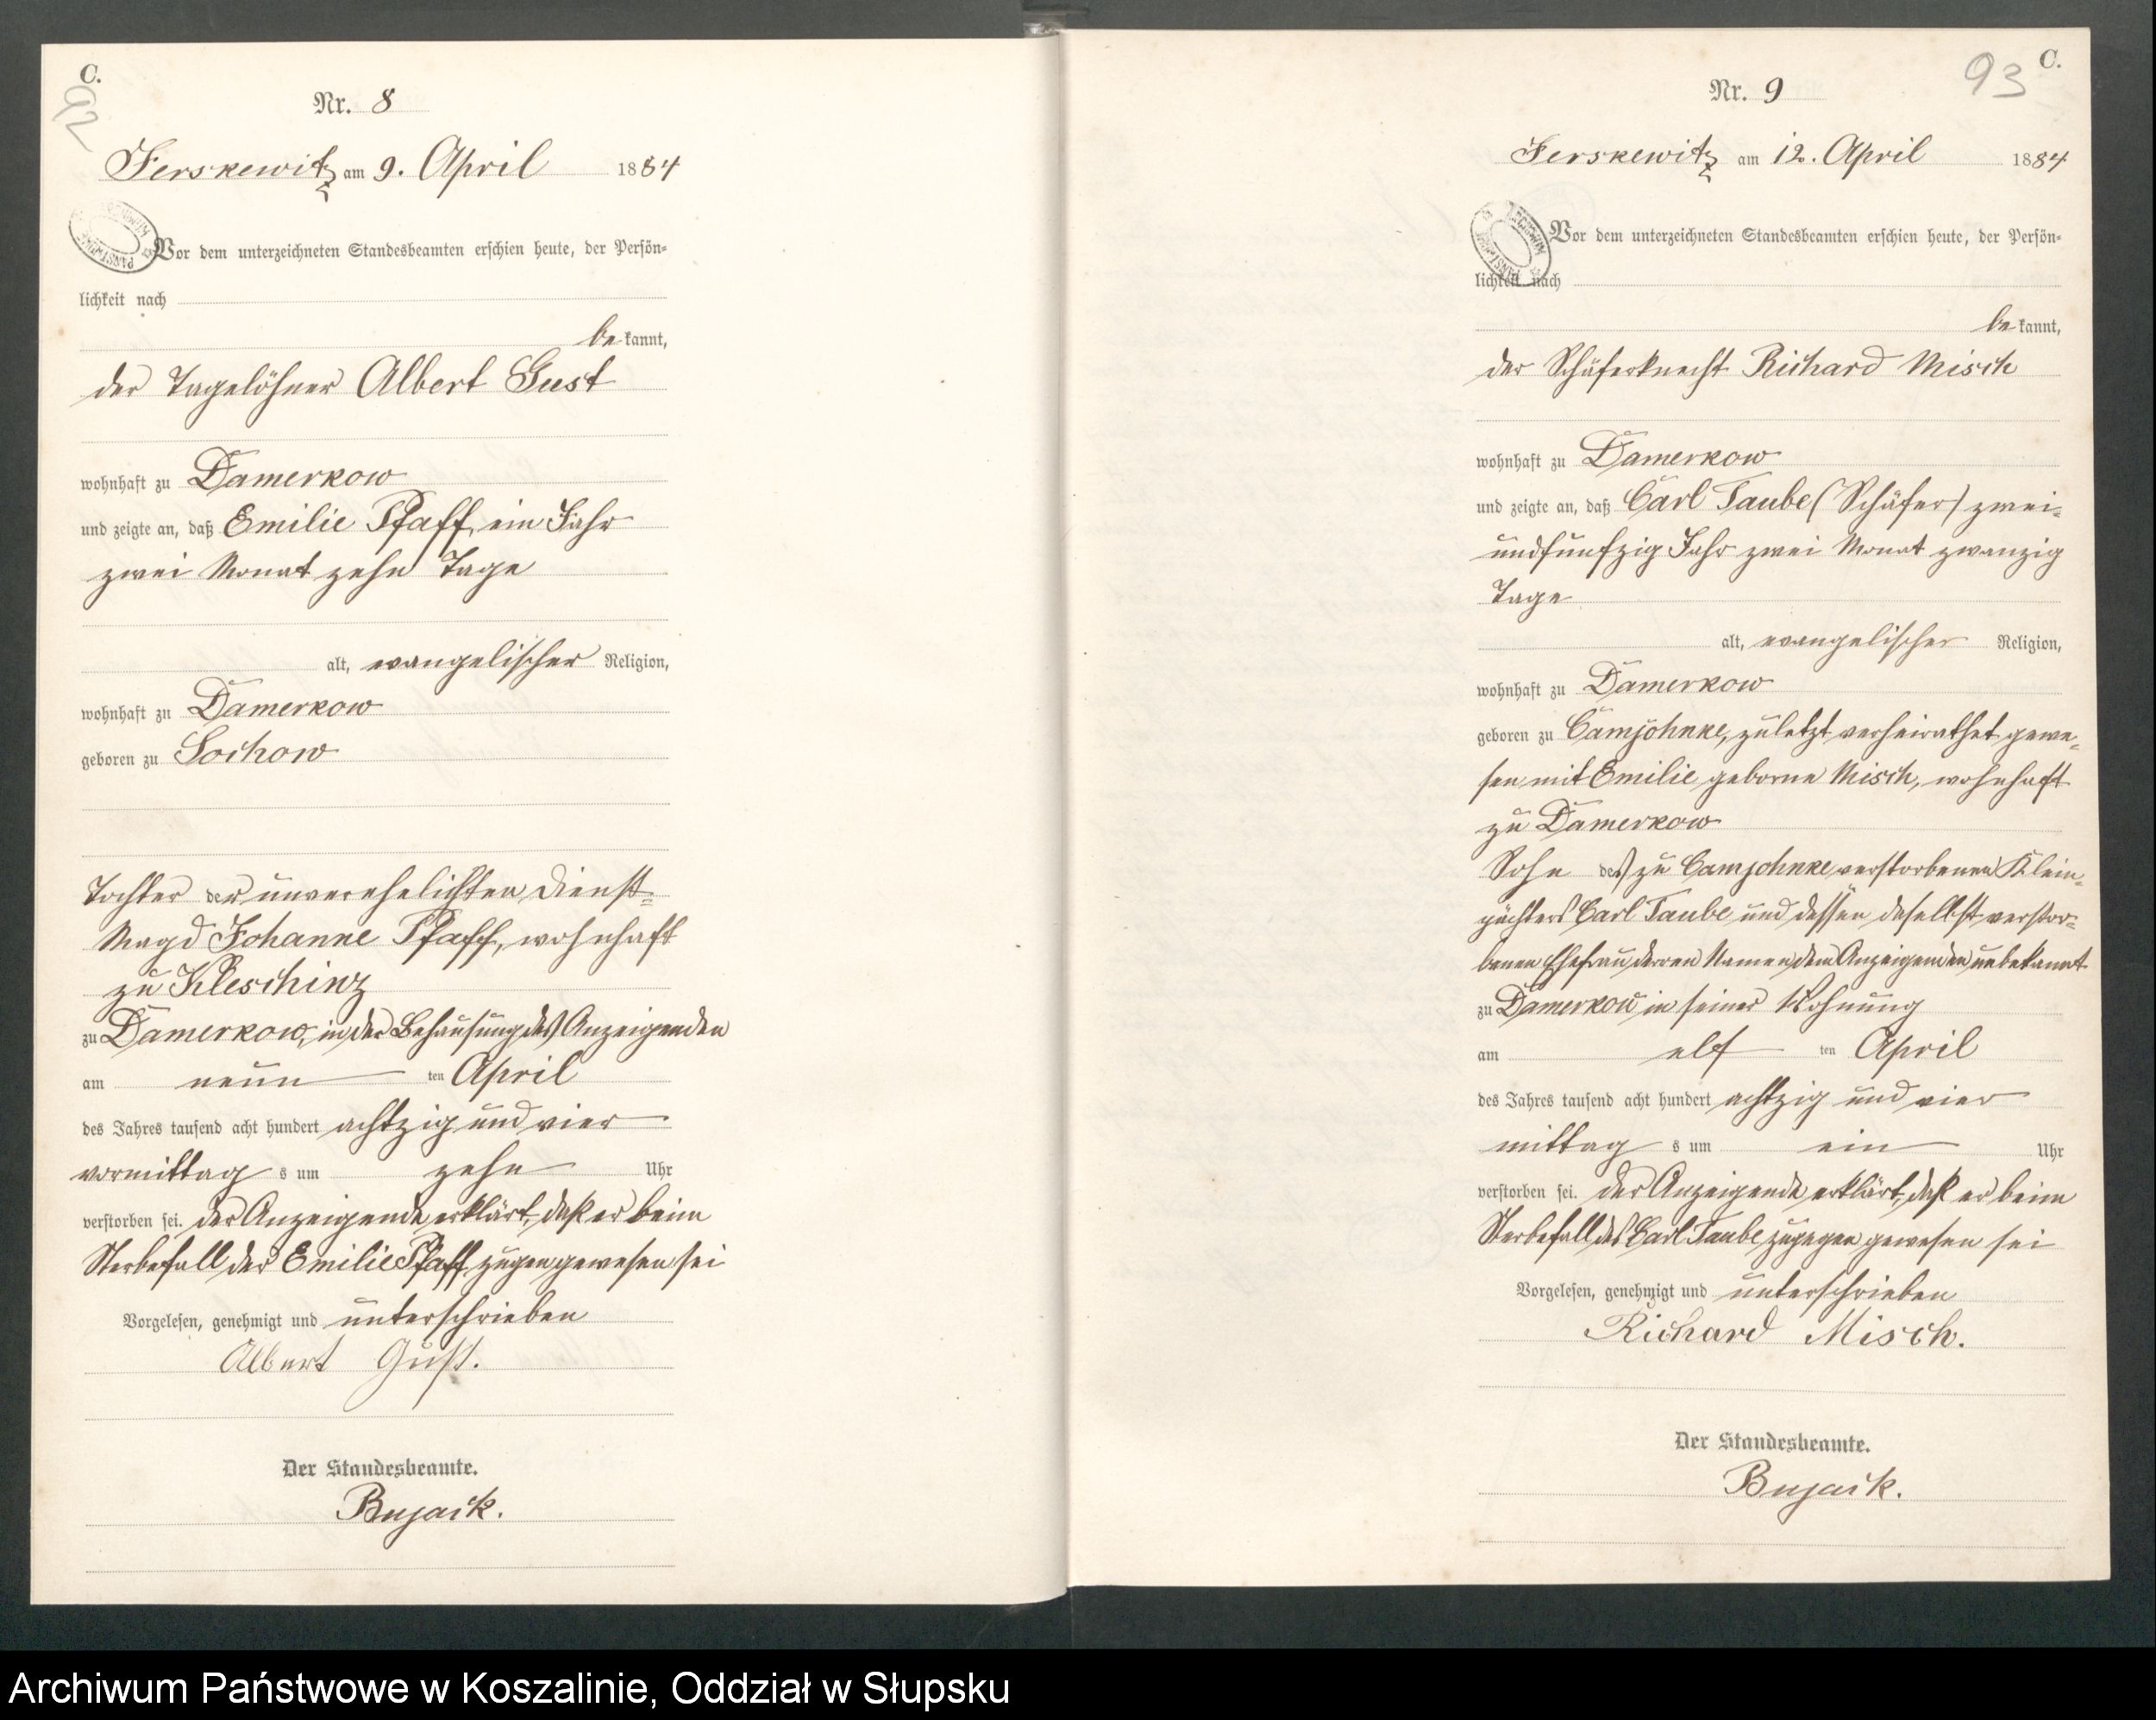 C.
92
Nr. 8
Jerskewitz am 9. April 1884
Vor dem unterzeichneten Standesbeamten erschien heute, der Persön-
lichkeit nach
bekannt,
der Tagelöhner Albert Gust
wohnhaft zu Damerkow
und zeigte an, daß Emilie Pfaff, ein Jahr
zwei Monat zehn Tage
alt, evangelischer Religion,
wohnhaft zu Damerkow
geboren zu Sochow
Tochter der unverehelichten Dienst-
Magd Johanne Pfaff, wohnhaft
zu Kleschinz
zu Damerkow, in der Behausung des Anzeigenden
am neun ten April
des Jahres tausend acht hundert achtzig und vier
vormittag s um zehn Uhr
verstorben sei. der Anzeigende erklärt, daß er beim
Sterbefall der Emilie Pfaff zugen gewesen sei
Vorgelesen, genehmigt und unterschrieben
Albert Gust.
Der Standesbeamte.
Bujack.
93
C.
Nr. 9
Jerskewitz am 12. April 1884
Vor dem unterzeichneten Standesbeamten erschien heute, der Persön-
lichkeit nach
bekannt,
der Schäferknecht Richard Misch
wohnhaft zu Damerkow
und zeigte an, daß Carl Taube (Schäfer) zwei-
undfunfzig Jahr zwei Monat zwanzig
Tage
alt, evangelischer Religion,
wohnhaft zu Damerkow
geboren zu Camjohnke, zuletzt verheirathet gewe-
sen mit Emilie geborne Misch, wohnhaft
zu Damerkow
Sohn des zu Camjohnke verstorbenen Klein-
pächters Carl Taube und dessen daselbst verstor-
benen Ehefrau, derren Namen dem Anzeigenden unbekannt
zu Damerkow in seiner Wohnung
am elf ten April
des Jahres tausend acht hundert achtzig und vier
mittag s um ein Uhr
verstorben sei. der Anzeigende erklärt, daß er beim
Sterbefall des Carl Taube zugegen gewesen sei
Vorgelesen, genehmigt und unterschrieben
Richard Misch.
Der Standesbeamte.
Bujack.
Archiwum Państwowe w Koszalinie, Oddział w Słupsku